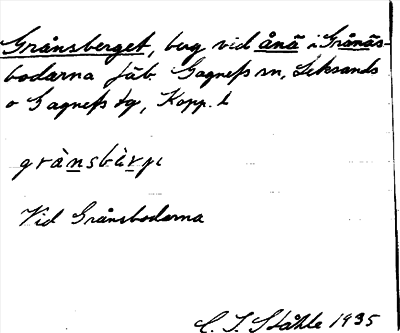 Grånsberget, berg vid ånä i Grånäs-
bodarna fäb. Gagnefs sn, Leksands
o Gagnefs tg, Kopp. l
grànsbàrjı
Vid Grånsbodarna
C. I. Ståhle 1935